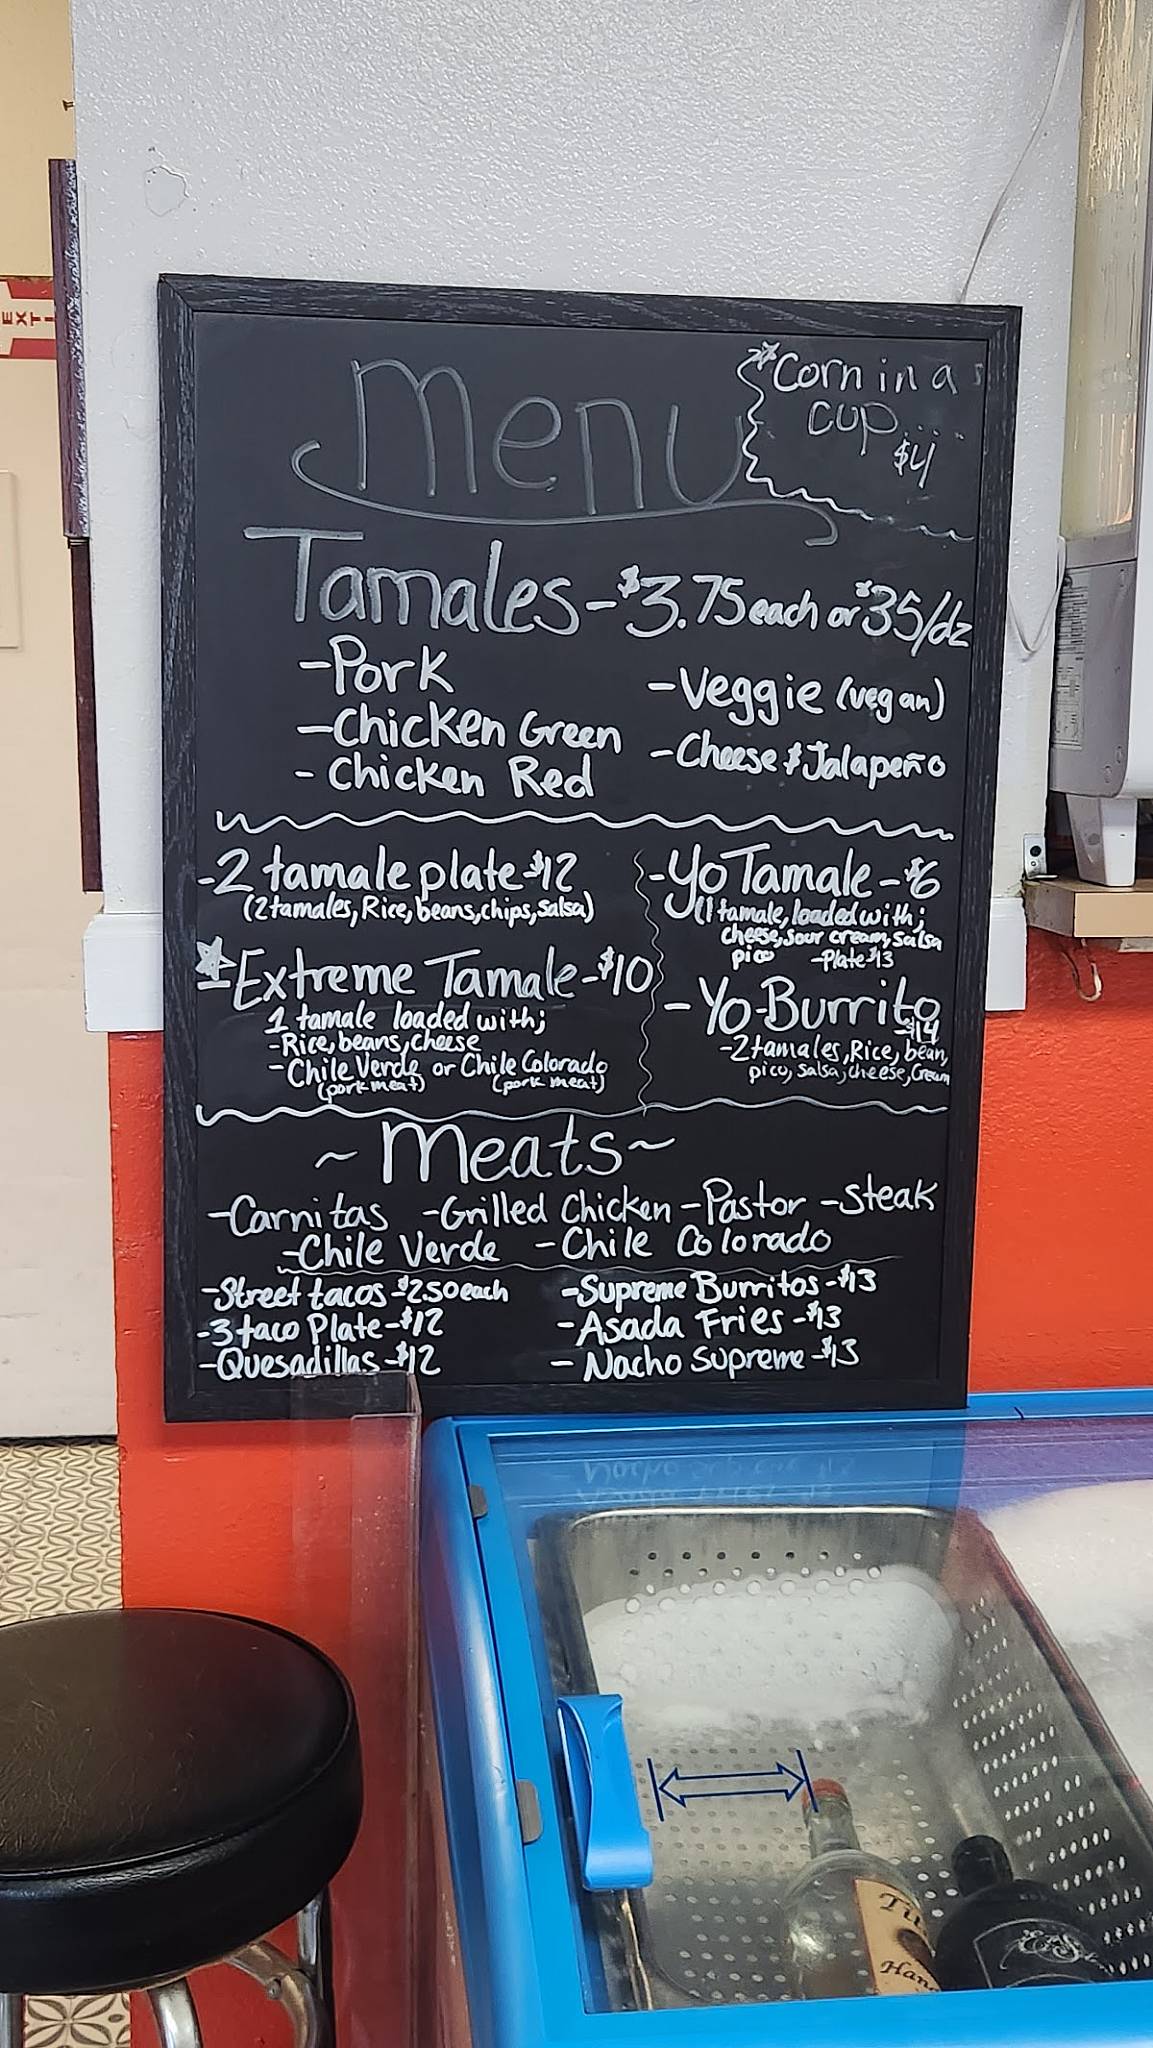 EXIT
Menu
*Corn in a
cup....
$4
Tamales - $3.75 each or $35/dz
- Pork
- Chicken Green
- Chicken Red
- Veggie (vegan)
- Cheese & Jalapeño
- 2 tamale plate - $12
(2 tamales, Rice, beans, chips, salsa)
Extreme Tamale - $10
1 tamale loaded with;
- Rice, beans, cheese
- Chile Verde or Chile Colorado
(pork meat) (pork meat)
- Yo Tamale - $6
(1 tamale, loaded with;
cheese, sour cream, salsa
pico - Plate $13
- Yo-Burrito
- $14
- 2 tamales, Rice, bean,
pico, salsa, cheese, Cream
~ Meats ~
- Carnitas - Grilled Chicken - Pastor - Steak
- Chile Verde - Chile Colorado
- Street tacos - $2.50 each
- 3 taco Plate - $12
- Quesadillas - $12
- Supreme Burritos - $13
- Asada Fries - $13
- Nacho Supreme - $13